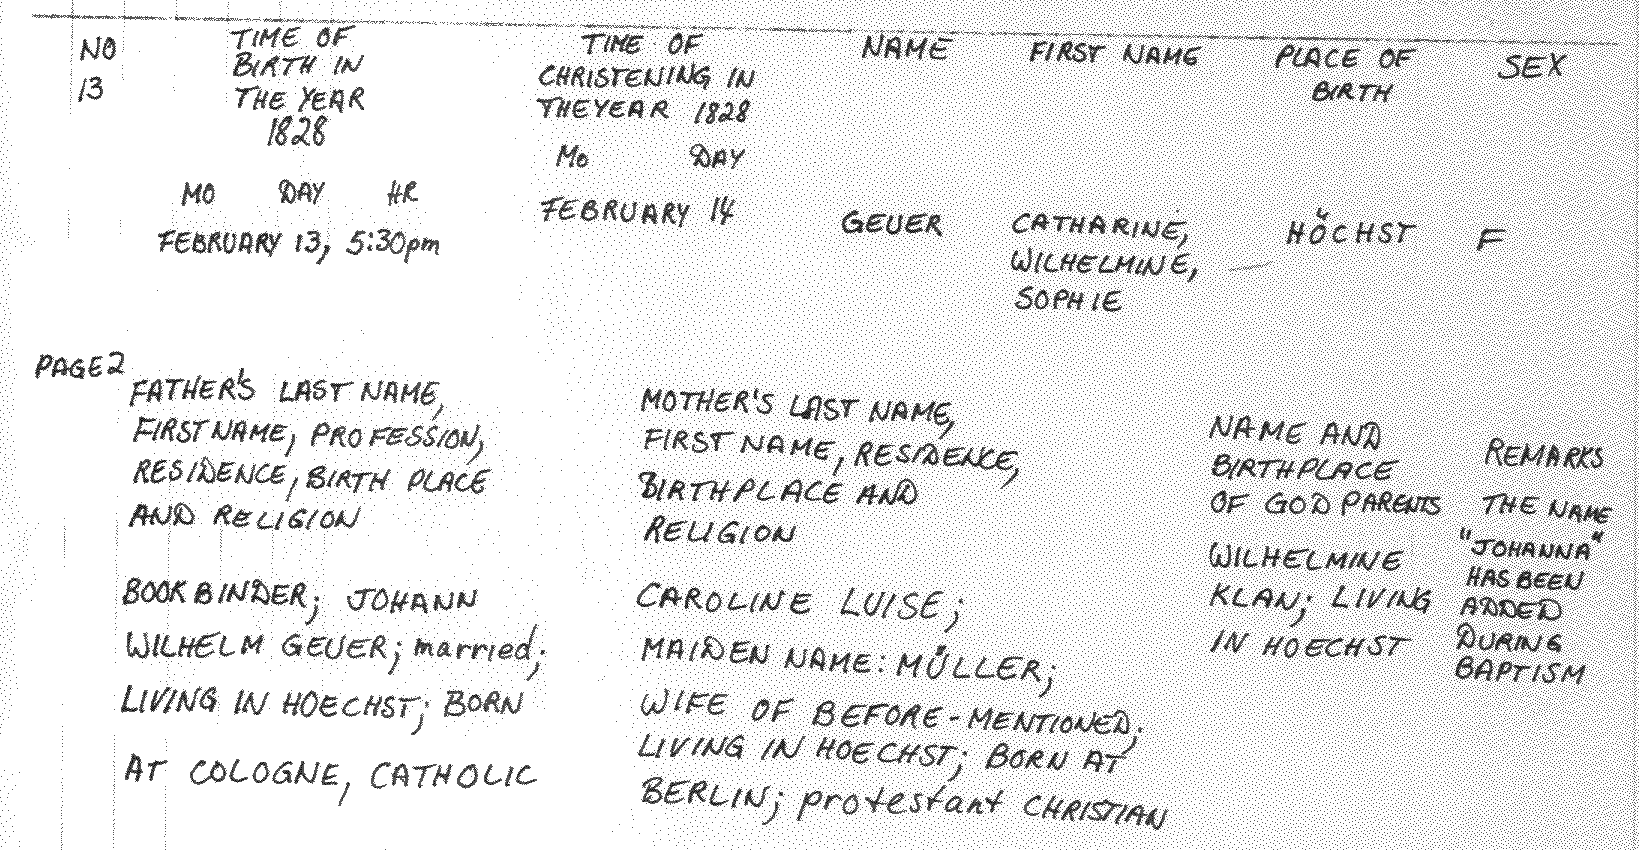 NO
13
TIME OF
BIRTH IN
THE YEAR
1828
MO DAY HR
FEBRUARY 13, 5:30pm
TIME OF
CHRISTENING IN
THE YEAR 1828
Mo DAY
FEBRUARY 14
NAME
GEUER
FIRST NAME
CATHARINE,
WILHELMINE,
SOPHIE
PLACE OF
BIRTH
HÖCHST
SEX
F
PAGE 2
FATHER'S LAST NAME,
FIRST NAME, PROFESSION,
RESIDENCE, BIRTH PLACE
AND RELIGION
BOOKBINDER; JOHANN
WILHELM GEUER; married;
LIVING IN HOECHST; BORN
AT COLOGNE, CATHOLIC
MOTHER'S LAST NAME,
FIRST NAME, RESIDENCE,
BIRTHPLACE AND
RELIGION
CAROLINE LUISE;
MAIDEN NAME: MÜLLER;
WIFE OF BEFORE-MENTIONED;
LIVING IN HOECHST; BORN AT
BERLIN; protestant CHRISTIAN
NAME AND
BIRTHPLACE
OF GOD PARENTS
WILHELMINE
KLAN; LIVING
IN HOECHST
REMARKS
THE NAME
"JOHANNA"
HAS BEEN
ADDED
DURING
BAPTISM